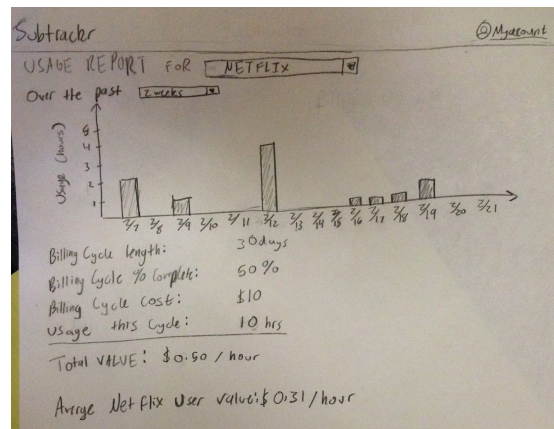 Subtrackr
Myacount
USAGE REPORT FOR NETFLIX
Over the past 2 weeks
Usage (hours)
5
4
3
2
1
2/7 2/8 2/9 2/10 2/11 2/12 2/13 2/14 2/15 2/16 2/17 2/18 2/19 2/20 2/21
Billing Cycle length: 30 days
Billing Cycle % Complete: 50%
Billing Cycle Cost: $10
Usage this Cycle: 10 hrs
Total VALUE: $0.50 / hour
Avarge Netflix User value: $0.31 / hour